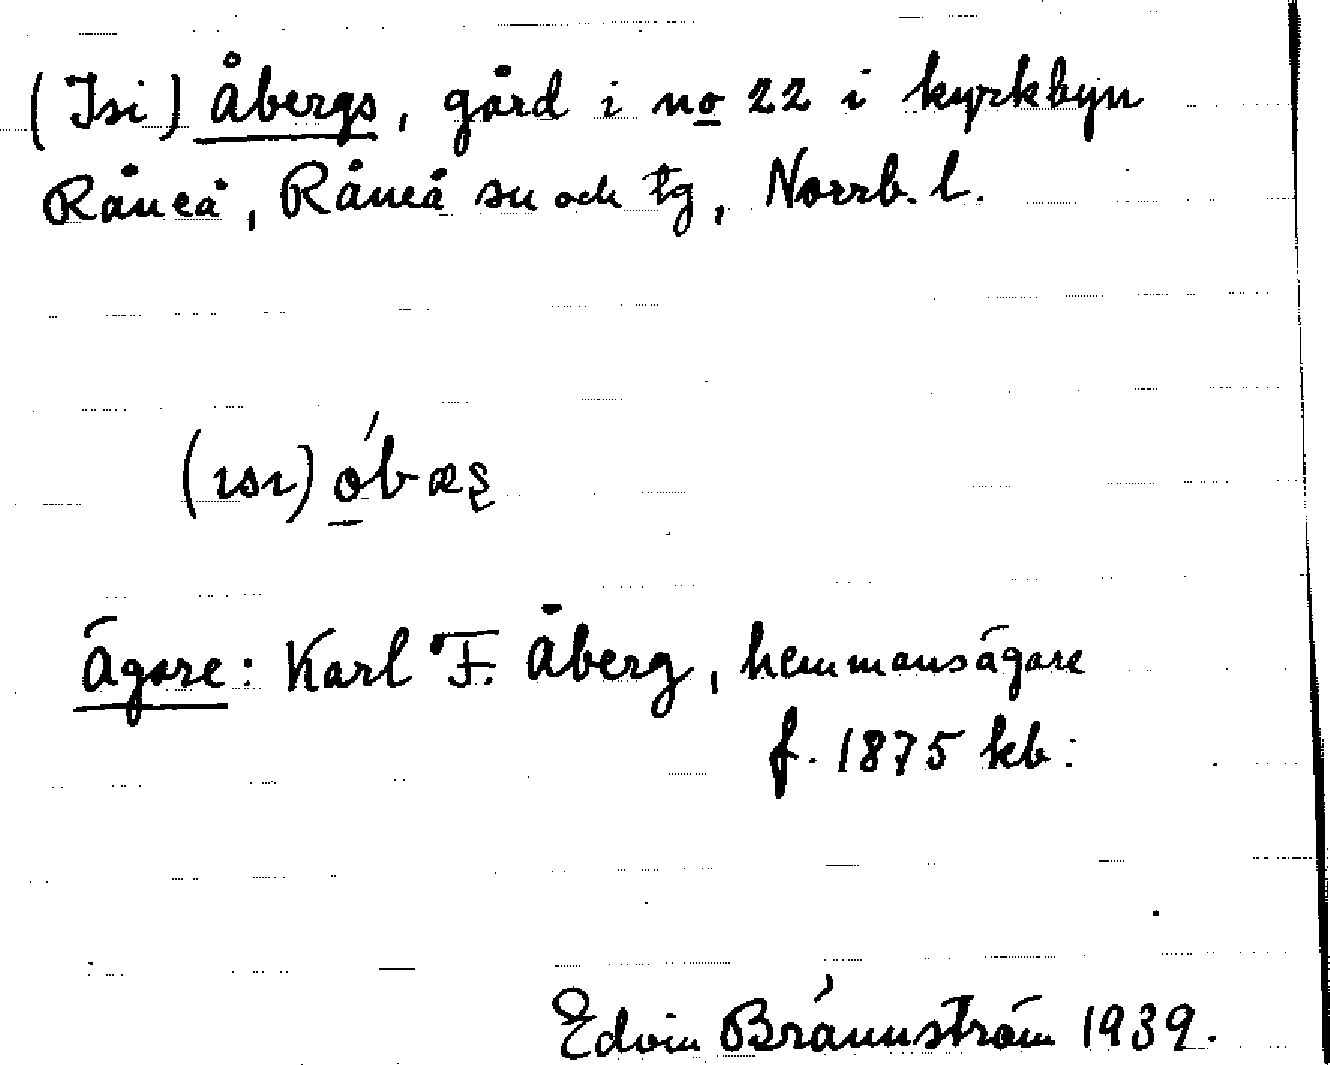 (Isi) Åbergs, gård i no 22 i kyrkbyn
Råneå, Råneå sn och tg, Norrb. l.
(ısı) o̲´bæs̨
Ägare: Karl F. Åberg, hemmansägare
f. 1875 kb:
Edvin Brännström 1939.